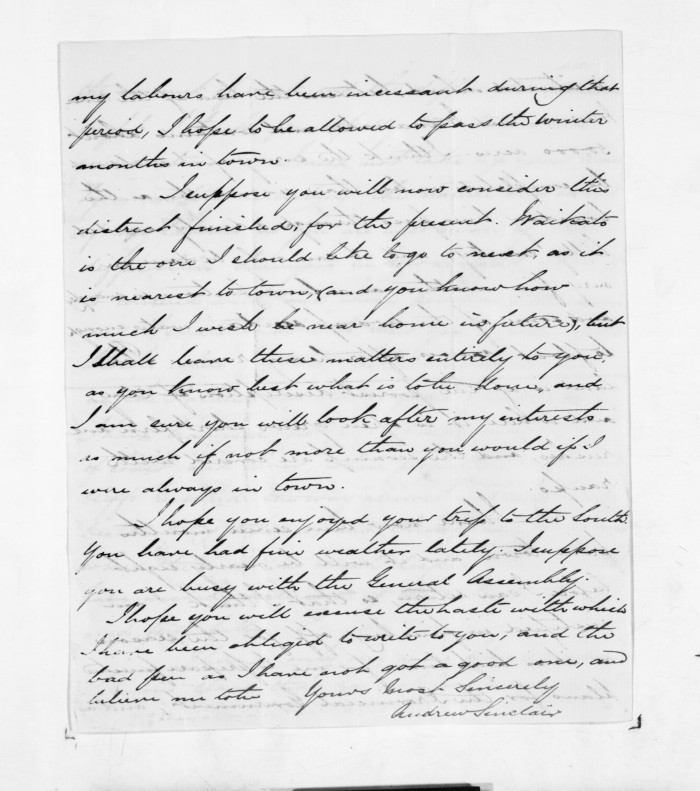 my labours have been incessant during that
period, I hope to be allowed to pass the winter
months in town.
I suppose you will now consider this
district finished, for the present. Waikato
is the one I should like to go to next, as it
is nearest to town, (and you know how
much I wish be near home in future), but
I shall leave these matters entirely to you,
as you know best what is to be done, and
I am sure you will look after my interests
as much if not more than you would if I
were always in town.
I hope you enjoyed your trip to the South.
You have had fine weather lately. I suppose
you are busy with the General Assembly.
I hope you will excuse the haste with which
I have been obliged to write to you, and the
bad pen as I have not got a good one, and
believe me to be Yours Most Sincerely
Andrew Sinclair